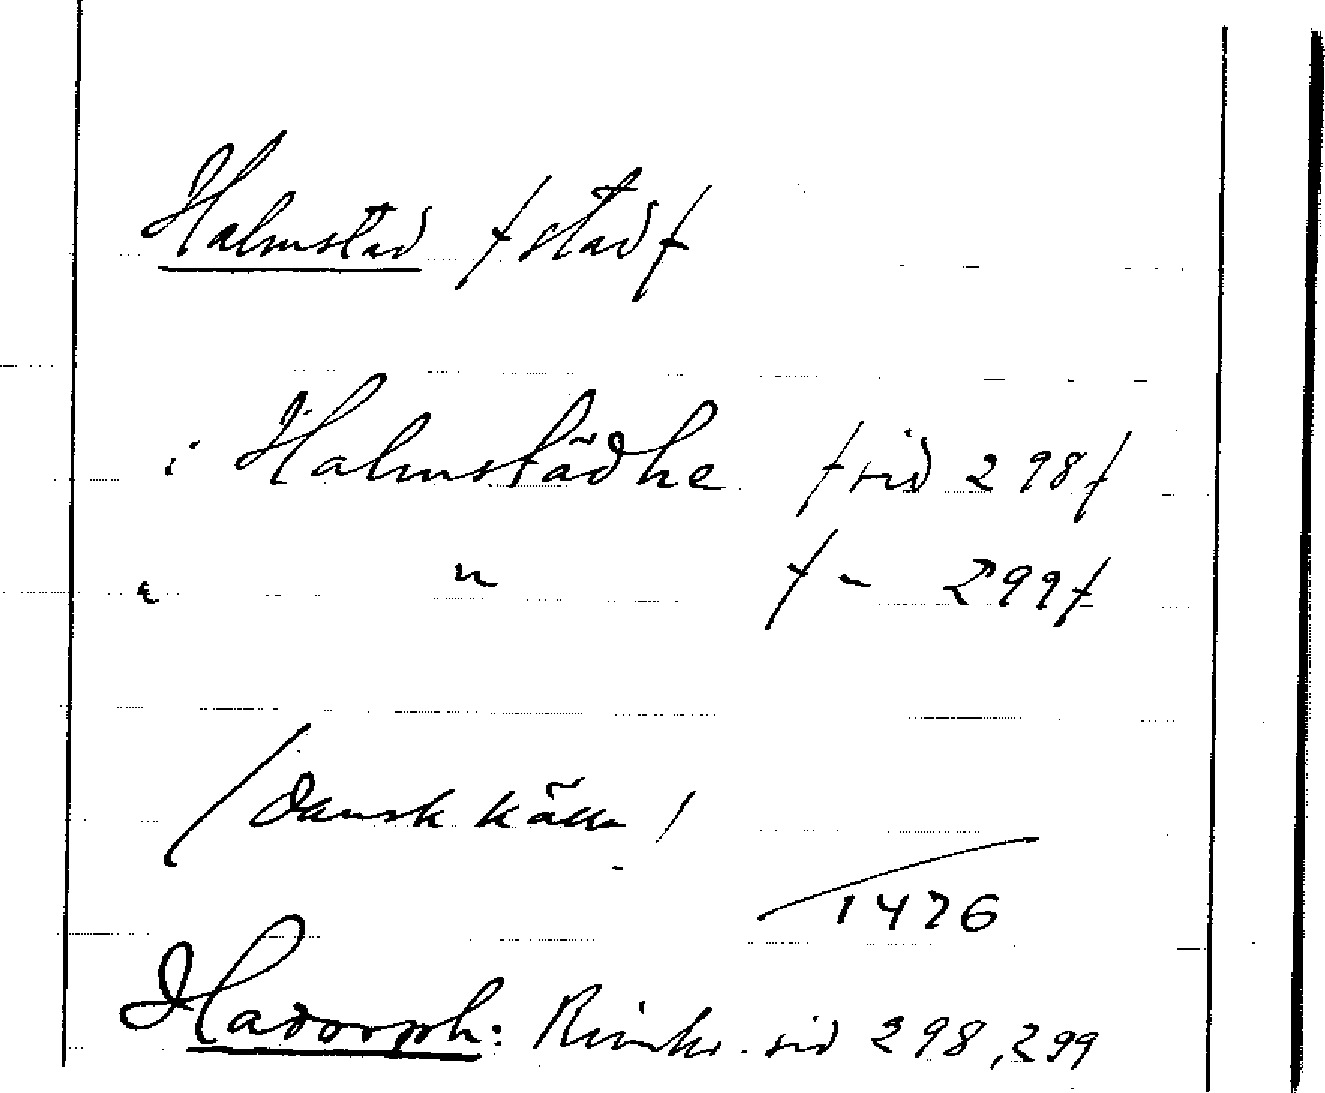 Halmstad / stad /
i Halmstädhe / sid 298 /
" " / - 299 /
/ Dansk källa /
1476
Hadorph: Rimkr. sid 298, 299